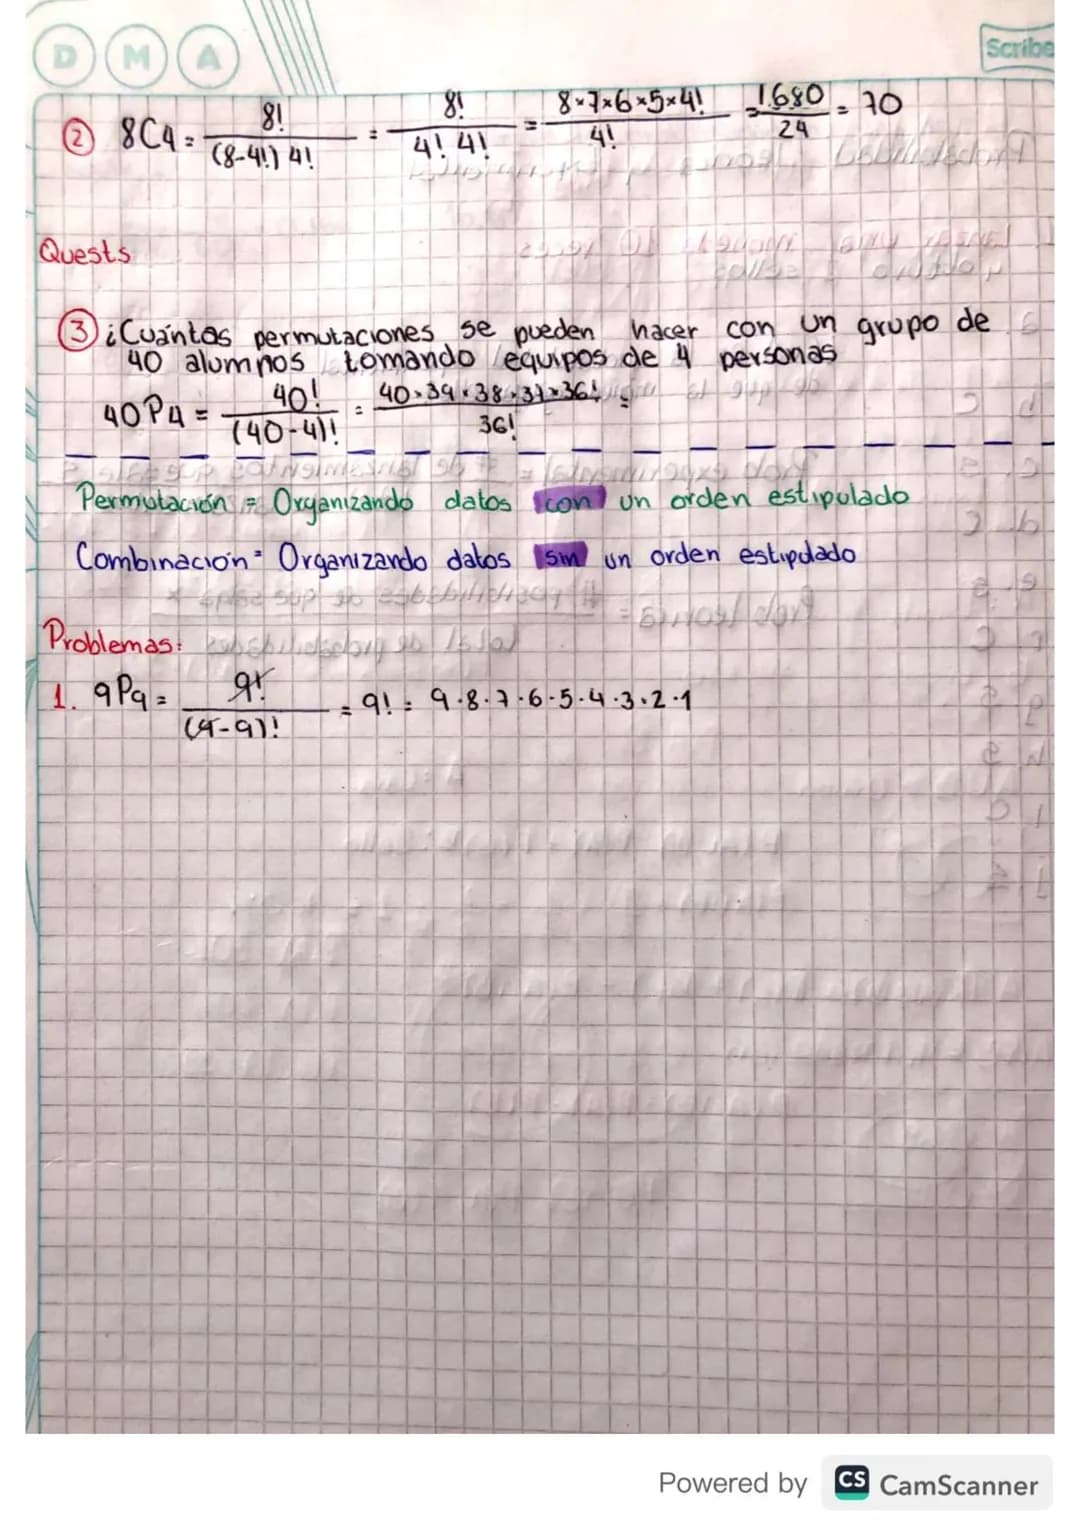 D M A
Scribe
② 8C4 = 8! / (8-4!) 4! = 8! / 4! 4! = 8×7×6×5×4! / 4! = 1680 / 24 = 70
Quests
③ ¿Cuántas permutaciones se pueden hacer con un grupo de
40 alumnos tomando equipos de 4 personas
40P4 = 40! / (40-4)! = 40·39·38·37·36! / 36! =
Permutación = Organizando datos con un orden estipulado
Combinación = Organizando datos sin un orden estipulado
Problemas:
1. 9P9 = 9! / (9-9)! = 9! = 9·8·7·6·5·4·3·2·1
Powered by CS CamScanner